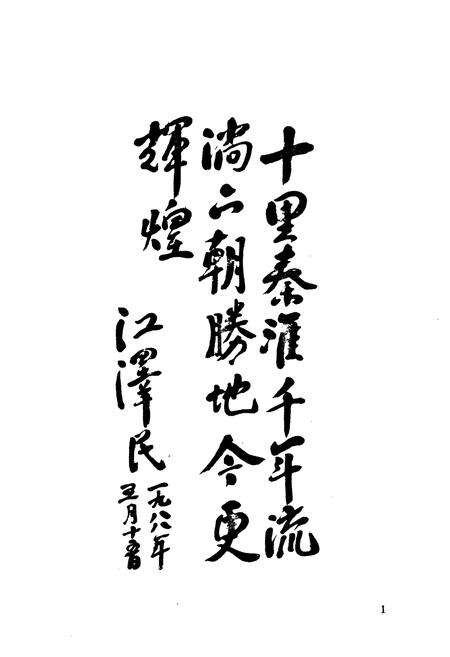 十里秦淮千年流
淌六朝勝地今更
輝煌
江澤民
一九八八年
五月十五日
1